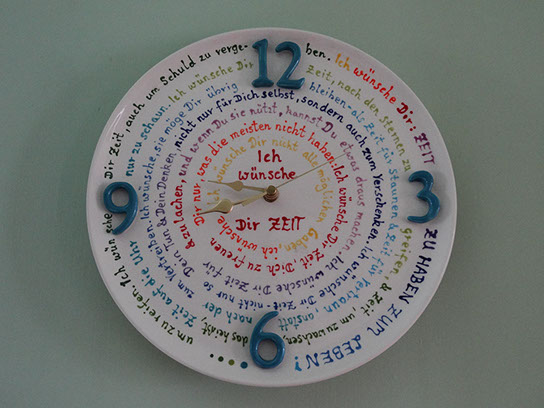 12
3
6
9
Ich
wünsche
Dir ZEIT
Ich wünsche Dir nicht alle möglichen Gaben, ich wünsche
Dir nur, was die meisten nicht haben: Ich wünsche Dir Zeit, Dich zu freuen
& zu lachen, und wenn Du sie nützt, kannst Du etwas draus machen. Ich wünsche Dir Zeit für
Dein Tun & Dein Denken, nicht nur für Dich selbst, sondern auch zum Verschenken. Ich wünsche Dir Zeit - nicht nur so
zum Vertreiben. Ich wünsche, sie möge Dir übrig bleiben als Zeit für Staunen & Zeit für Vertraun, anstatt nach der
Zeit auf die Uhr nur zu schaun. Ich wünsche Dir Zeit, nach den Sternen zu greifen, & Zeit, um zu wachsen, das heißt,
um zu reifen. Ich wünsche Dir Zeit, auch um Schuld zu vergeben. Ich wünsche Dir: ZEIT ZU HABEN ZUM LEBEN!